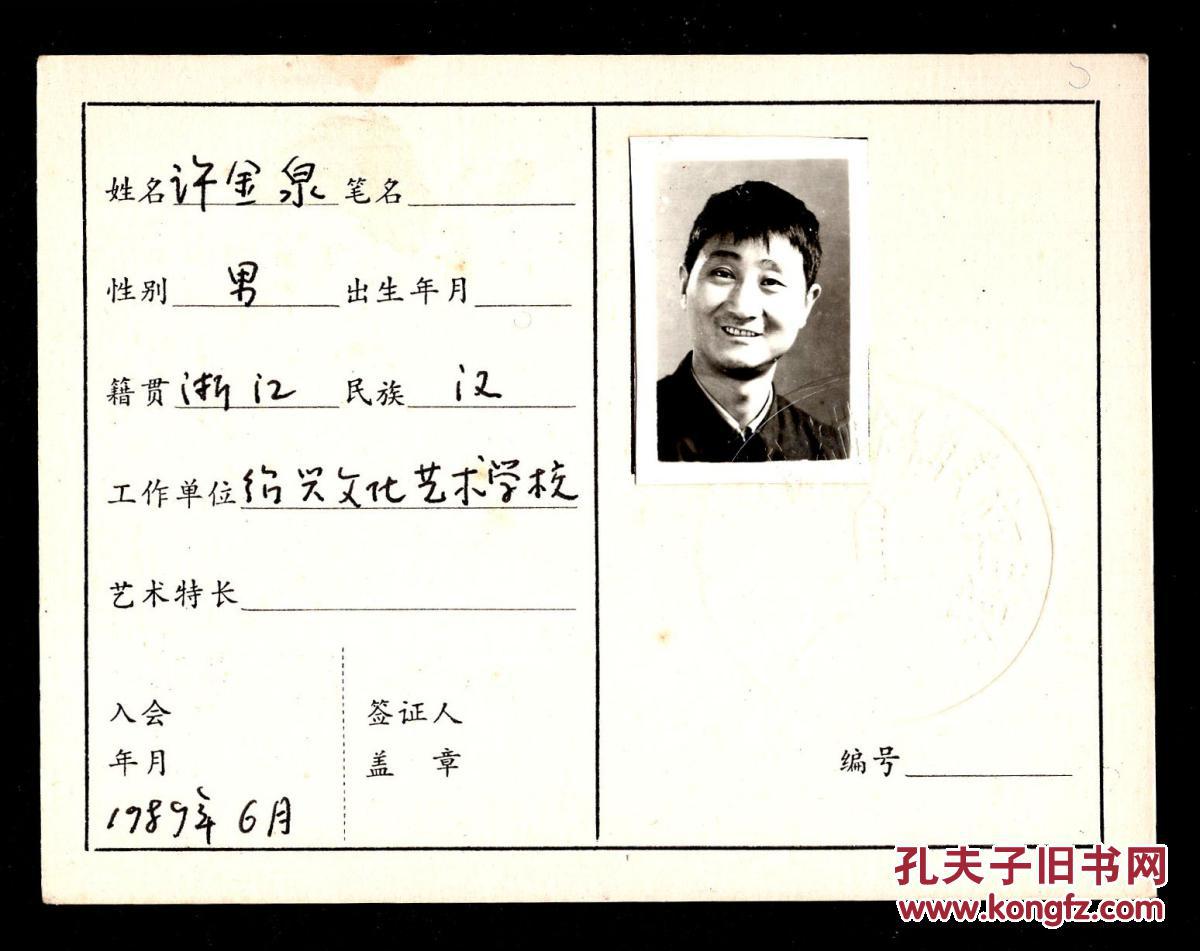 姓名许金泉 笔名
性别 男 出生年月
籍贯 浙江 民族 汉
工作单位 绍兴文化艺术学校
艺术特长
入会 签证人
年月 盖 章
1989年6月
编号
孔夫子旧书网
www.kongfz.com